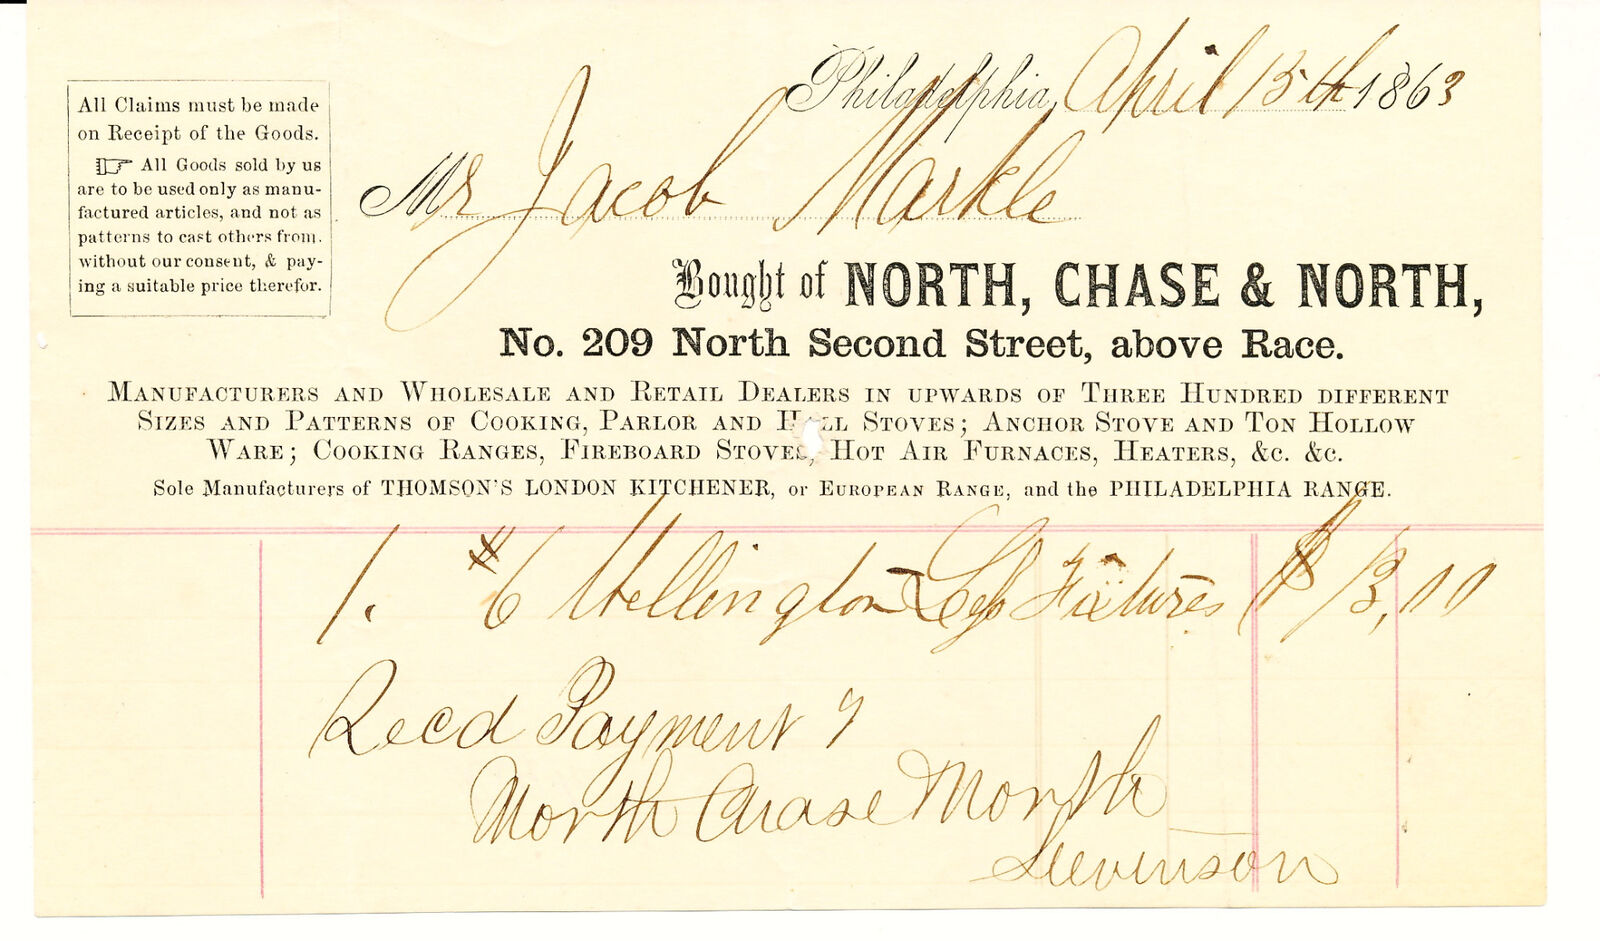 Philadelphia, April 15th 1863
All Claims must be made
on Receipt of the Goods.
☞ All Goods sold by us
are to be used only as manu-
factured articles, and not as
patterns to cast others from.
without our consent, & pay-
ing a suitable price therefor.
Mr Jacob Markle
Bought of NORTH, CHASE & NORTH,
No. 209 North Second Street, above Race.
Manufacturers and Wholesale and Retail Dealers in upwards of Three Hundred different
Sizes and Patterns of Cooking, Parlor and Hall Stoves; Anchor Stove and Ton Hollow
Ware; Cooking Ranges, Fireboard Stoves, Hot Air Furnaces, Heaters, &c. &c.
Sole Manufacturers of THOMSON'S LONDON KITCHENER, or European Range, and the PHILADELPHIA RANGE.
1. #6 Wellington Fixtures $13,00
Recd Payment
North Chase North
Stevenson